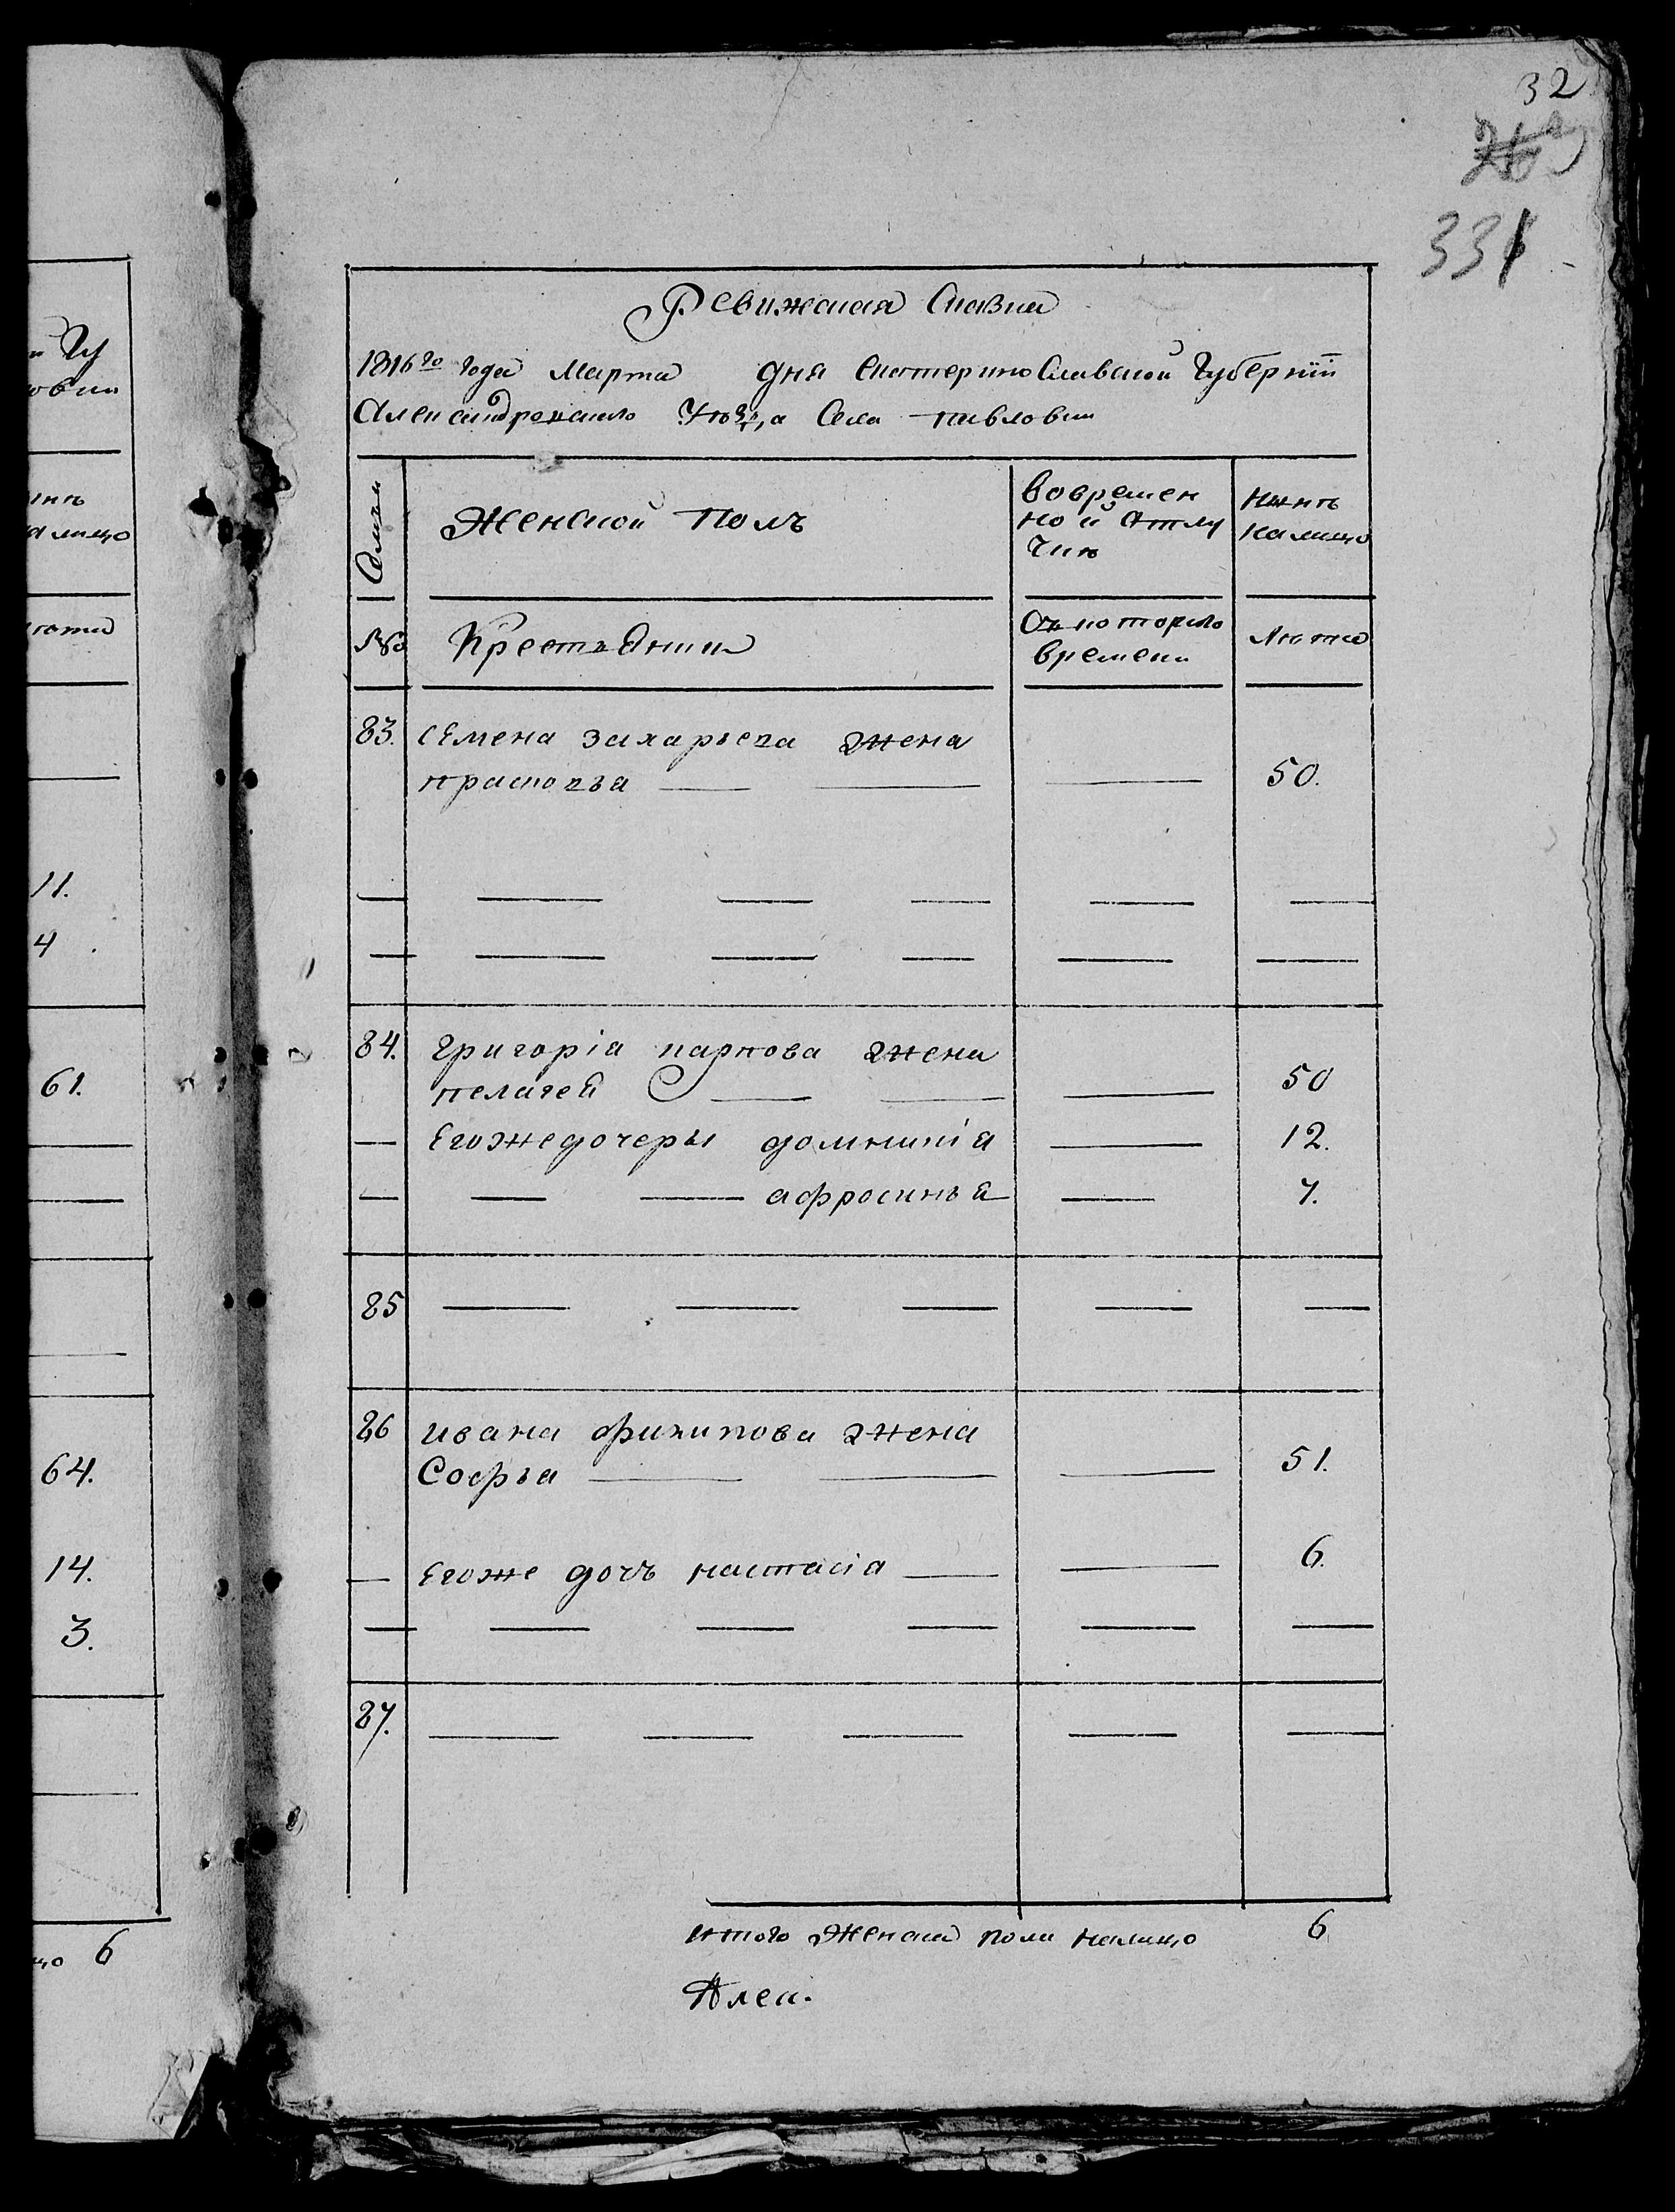 32
331
Ревижская Сказка
1816го года Марта дня Екатеринославской Губернїи
Александровскаго Уѣзда Села Павловки
Семьи
Женской Полъ
вовремен
ной Отлу
чкѣ
Нынѣ
налицо
№
Крестьянки
Съ котораго
времени
Лѣта
83. Семена захарьева жена
прасковья 50.
84. григорїа карпова жена
пелагея 50
Егожедочеры домникїа 12.
афросинья 7.
85
86 ивана филипова жена
Софья 51.
Егоже дочь настасїа 6.
87.
итого Женска пола налицо 6
Алек.
11.
4
61.
64.
14.
3.
6